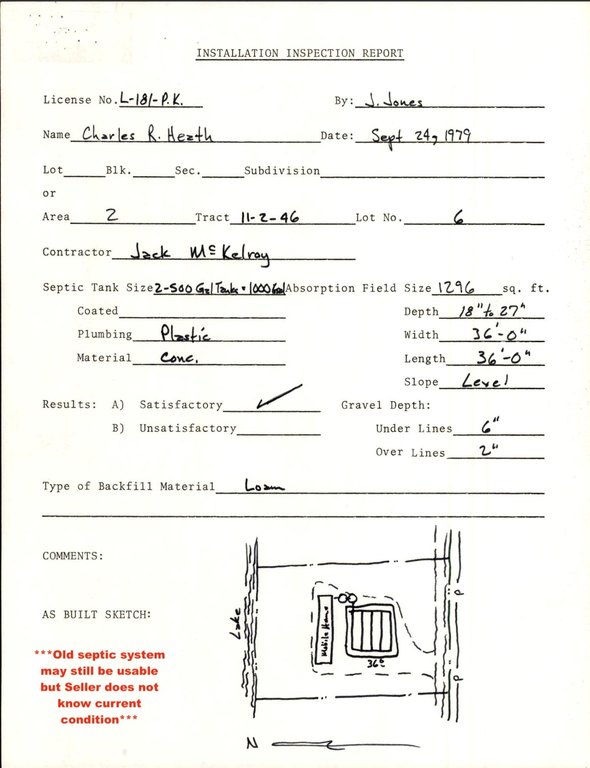 INSTALLATION INSPECTION REPORT
License No. L-181-P.K. By: J. Jones
Name Charles R. Heath Date: Sept 24, 1979
Lot Blk. Sec. Subdivision
or
Area 2 Tract 11-2-46 Lot No. 6
Contractor Jack McKelroy
Septic Tank Size 2-500 Gal Tank = 1000 Gal Absorption Field Size 1296 sq. ft.
Coated Depth 18" to 27"
Plumbing Plastic Width 36'-0"
Material Conc. Length 36'-0"
Slope Level
Results: A) Satisfactory ✓ Gravel Depth:
B) Unsatisfactory Under Lines 6"
Over Lines 2"
Type of Backfill Material Loam
COMMENTS:
AS BUILT SKETCH:
Lake
Mobile Home
36'
P
P
N
***Old septic system
may still be usable
but Seller does not
know current
condition***